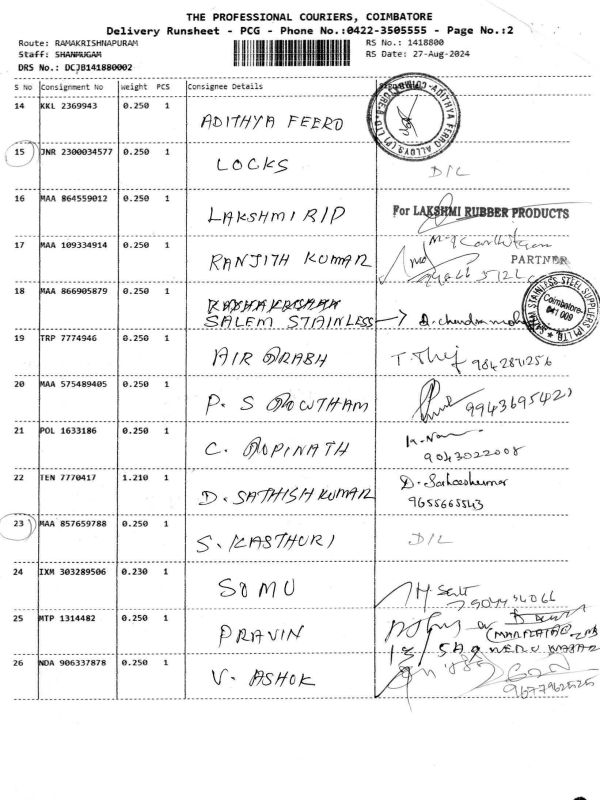 THE PROFESSIONAL COURIERS, COIMBATORE
Delivery Runsheet - PCG - Phone No.:0422-3505555 - Page No.:2
Route: RAMAKRISHNAPURAM RS No.: 1418800
Staff: SHANMUGAM RS Date: 27-Aug-2024
DRS No.: DCJB141880002
S No Consignment No Weight PCS Consignee Details
14 KKL 2369943 0.250 1 ADITHYA FERRO
ADITHYA FERRO ALLOYS (P) LTD
15 JNR 2300034577 0.250 1 LOCKS D/L
16 MAA 864559012 0.250 1 LAKSHMI R/P For LAKSHMI RUBBER PRODUCTS
17 MAA 109334914 0.250 1 RANJITH KUMAR PARTNER
18 MAA 866905879 0.250 1
SALEM STAINLESS D. chandra moh
SALEM STAINLESS STEEL SUPPLIERS (P) LTD. Coimbatore- 641 009
19 TRP 7774946 0.250 1 AIR ARABH 9842871256
20 MAA 575489405 0.250 1 P. S GOWTHAM
21 POL 1633186 0.250 1 C. GOPINATH 9043022008
22 TEN 7770417 1.210 1 D. SATHISH KUMAR D. Sathishkumar
9655665543
23 MAA 857659788 0.250 1 S. KASTHURI D/L
24 IXM 303289506 0.230 1 SOMU
25 MTP 1314482 0.250 1 PRAVIN
26 NDA 906337878 0.250 1 V. ASHOK 9677962525